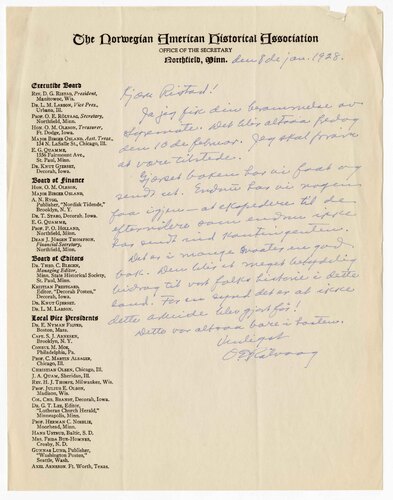 The Norwegian American Historical Association
OFFICE OF THE SECRETARY
Northfield, Minn. den 8de jan. 1928.
Executive Board
Rev. D. G. Ristad, President,
Manitowoc, Wis.
Dr. L. M. Larson, Vice Pres.,
Urbana, Ill.
Prof. O. E. Rölvaag, Secretary,
Northfield, Minn.
Hon. O. M. Oleson, Treasurer,
Ft. Dodge, Iowa.
Major Birger Osland, Asst. Treas.,
134 N. LaSalle St., Chicago, Ill.
E. G. Quamme,
1356 Fairmount Ave.,
St. Paul, Minn.
Dr. Knut Gjerset,
Decorah, Iowa.
Board of Finance
Hon. O. M. Oleson,
Major Birger Osland,
A. N. Rygg,
Publisher, "Nordisk Tidende,"
Brooklyn, N. Y.
Dr. T. Stabo, Decorah, Iowa.
E. G. Quamme,
Prof. P. O. Holland,
Northfield, Minn.
Dean J. Jörgen Thompson,
Financial Secretary,
Northfield, Minn.
Board of Editors
Dr. Theo. C. Blegen,
Managing Editor,
Minn. State Historical Society,
St. Paul, Minn.
Kristian Prestgard,
Editor, "Decorah Posten,"
Decorah, Iowa.
Dr. Knut Gjerset,
Dr. L. M. Larson.
Local Vice Presidents
Dr. E. Nyman Figved,
Boston, Mass.
Capt. S. J. Arnesen,
Brooklyn, N. Y.
Consul M. Moe,
Philadelphia, Pa.
Prof. C. Martin Alsager,
Chicago, Ill.
Christian Olsen, Chicago, Ill.
J. A. Quam, Sheridan, Ill.
Rev. H. J. Thorpe, Milwaukee, Wis.
Prof. Julius E. Olson,
Madison, Wis.
Col. Chr. Brandt, Decorah, Iowa.
Dr. G. T. Lee, Editor,
"Lutheran Church Herald,"
Minneapolis, Minn.
Prof. Herman C. Nordlie,
Moorhead, Minn.
Hans Ustrud, Baltic, S. D.
Mrs. Frida Bue-Homner,
Crosby, N. D.
Gunnar Lund, Publisher,
"Washington Posten,"
Seattle, Wash.
Axel Arneson, Ft. Worth, Texas.
Kjære Ristad!
Ja jeg fik din av
Det blir altsaa fredag
den 10de februar. Jeg skal forsøke
at være tilstede.
Gjerset boken har vi faat og
sendt ut. Endnu har vi nogen
faa igjen — at ekspedere til de
efternølere som endnu ikke
har sendt ind kontingenten.
Det er i mange maater en god
bok. Den blir et meget værdifuldt
bidrag til vort folks historie i dette
land. For en synd det er at ikke
dette arbeide blev gjort før!
Dette var altsaa bare i hasten.
Venligst
O E Rölvaag